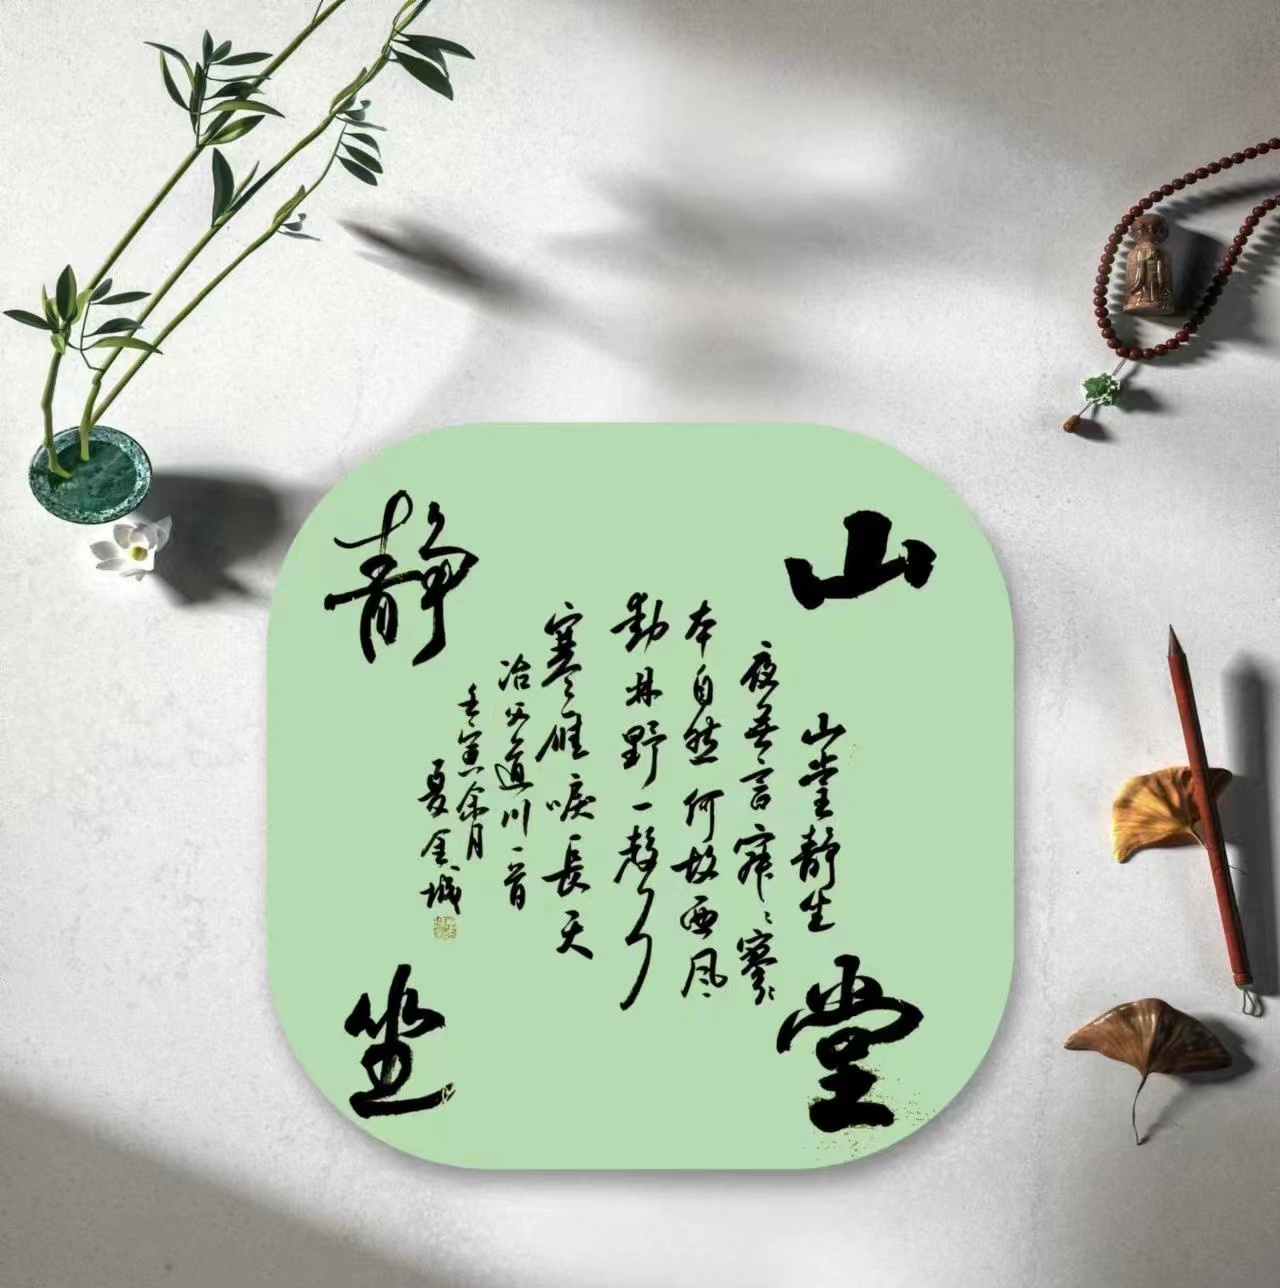 山堂
静坐
山堂静坐
夜無言寂々寥々
本自然何故西风
動林野一聲
寒雁唳長天
冶父道川一首
壬寅余月
夏金城